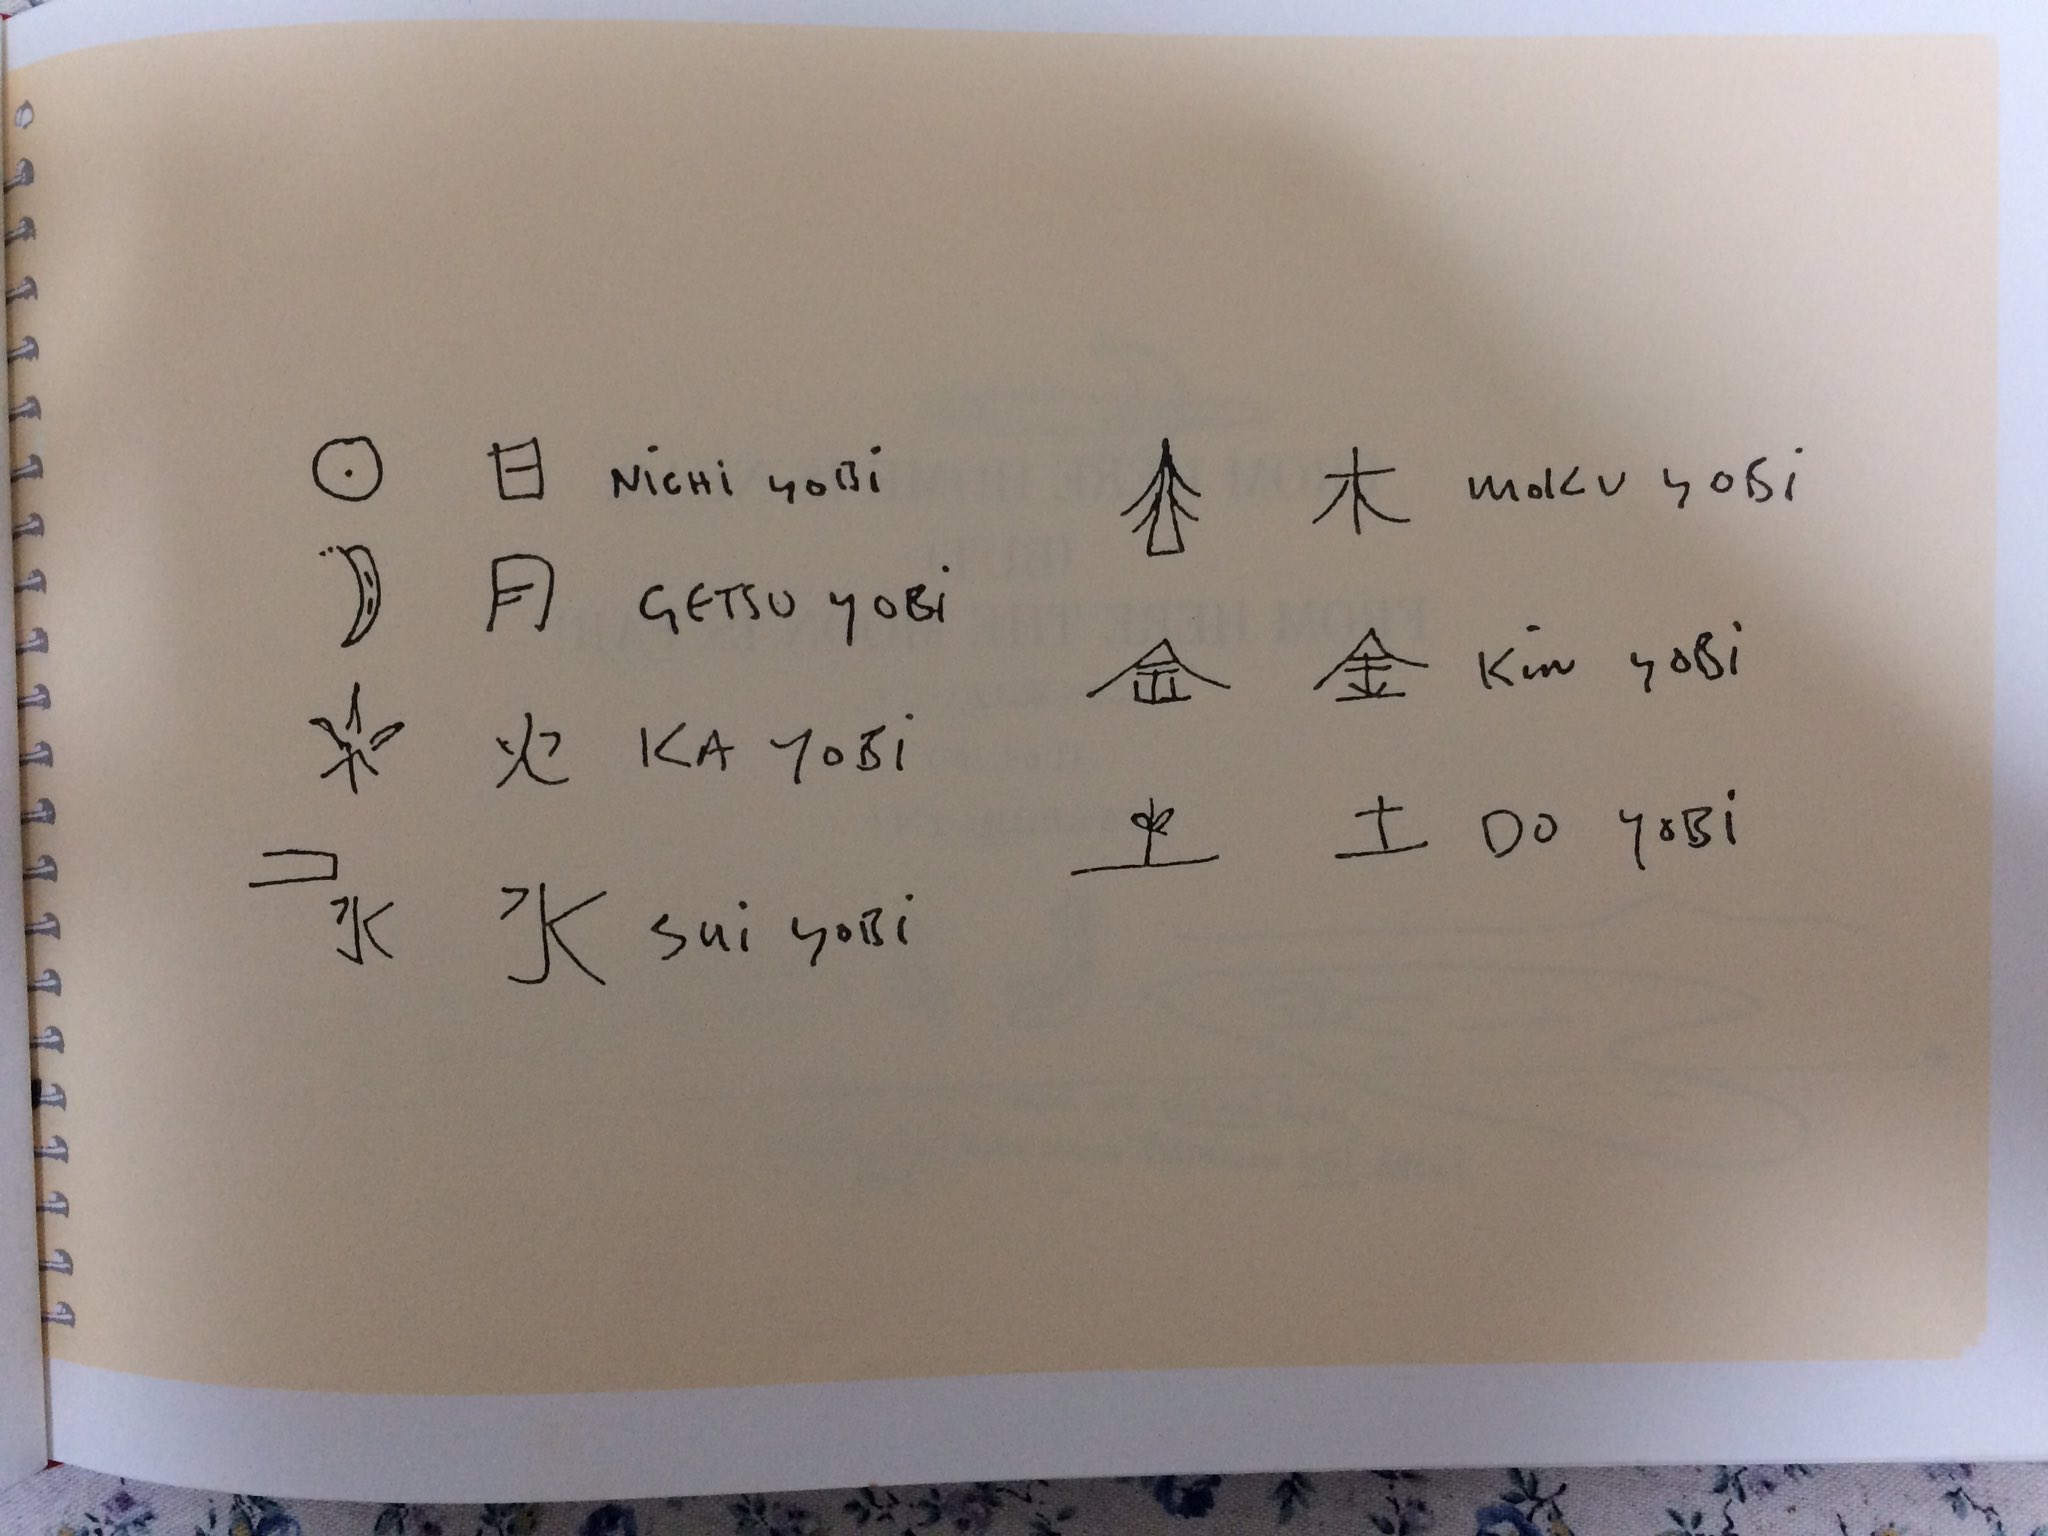 日 NiCHi yoBi
月 GETSU yoBi
火 KA YoBi
水 水 Sui yoBi
木 moKU yoBi
金 金 Kin yoBi
土 DO yoBi